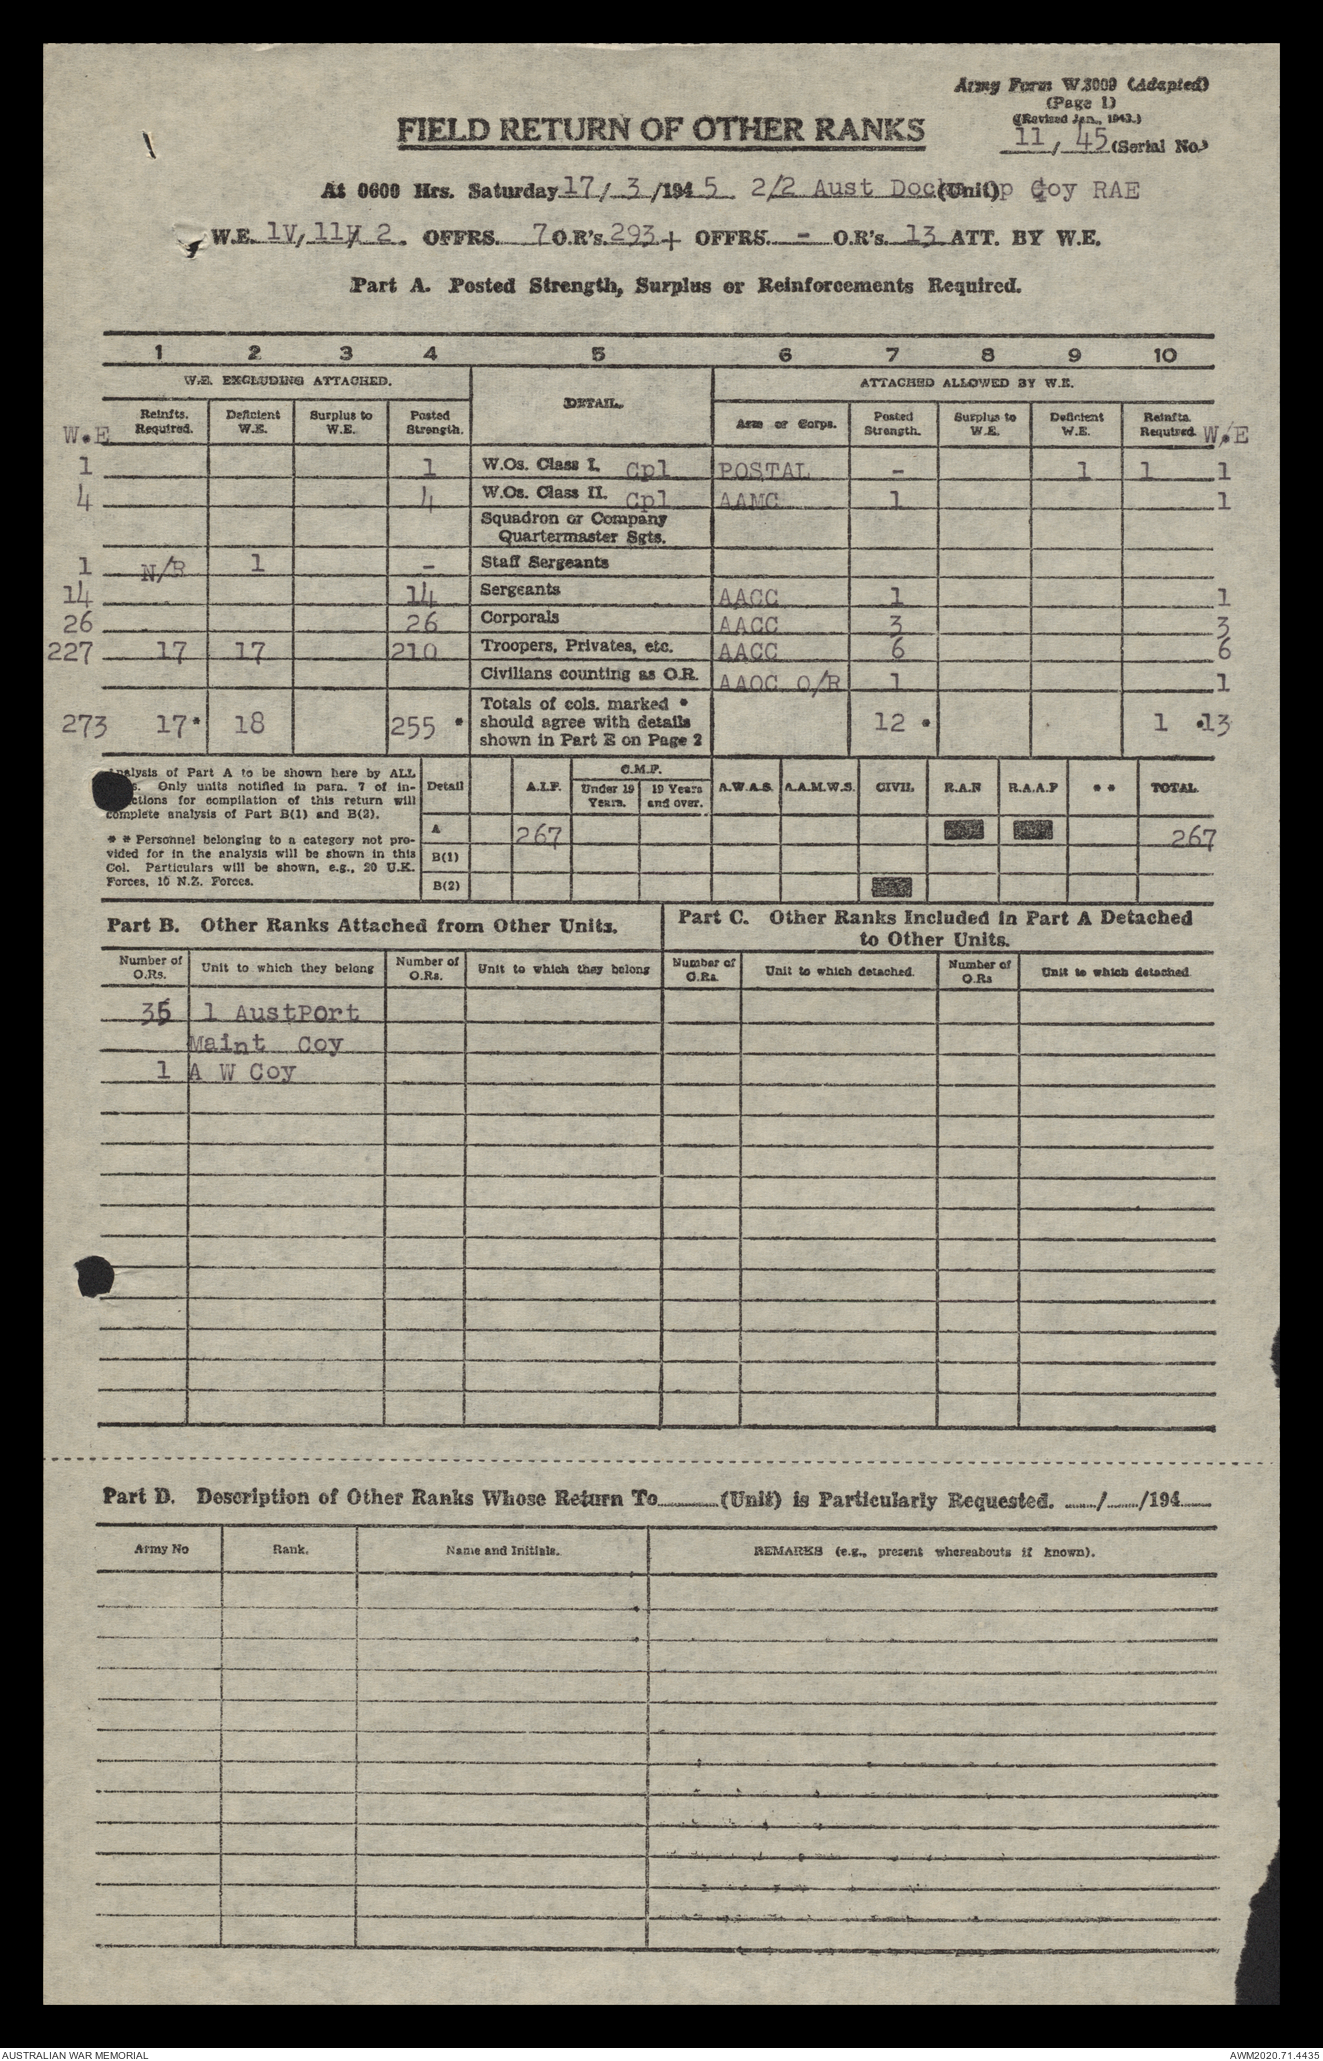 Army Form W.3009 (Adapted)
(Page 1)
(Revised Jan., 1943.)
11 / 45 (Serial No.)
FIELD RETURN OF OTHER RANKS
At 0600 Hrs. Saturday 17 / 3 /194 5. 2/2 Aust Docks Op Coy RAE (Unit)
W.E. 1V/11 2. OFFRS. 7 O.R's. 293 + OFFRS. – O.R's. 13 ATT. BY W.E.
Part A. Posted Strength, Surplus or Reinforcements Required.
1 2 3 4 5 6 7 8 9 10
W.E. EXCLUDING ATTACHED. DETAIL. ATTACHED ALLOWED BY W.E.
W.E Reinfts. Required. Deficient W.E. Surplus to W.E. Posted Strength. Arm or Corps. Posted Strength. Surplus to W.E. Deficient W.E. Reinfts. Required. W/E
1 1 W.Os. Class I. Cpl POSTAL – 1 1 1
4 4 W.Os. Class II. Cpl AAMC 1 1
Squadron or Company
Quartermaster Sgts.
1 N/R 1 – Staff Sergeants
14 14 Sergeants AACC 1 1
26 26 Corporals AACC 3 3
227 17 17 210 Troopers, Privates, etc. AACC 6 6
Civilians counting as O.R. AAOC O/R 1 1
Totals of cols. marked *
273 17* 18 255 * should agree with details 12 * 1 *13
shown in Part E on Page 2
Analysis of Part A to be shown here by ALL
Only units notified in para. 7 of in-
structions for compilation of this return will
complete analysis of Part B(1) and B(2).
* * Personnel belonging to a category not pro-
vided for in the analysis will be shown in this
Col. Particulars will be shown, e.g., 20 U.K.
Forces, 10 N.Z. Forces.
Detail A.I.F. C.M.F. Under 19 Years. 19 Years and over. A.W.A.S. A.A.M.W.S. CIVIL R.A.N R.A.A.F * * TOTAL
A 267 267
B(1)
B(2)
Part B. Other Ranks Attached from Other Units.
Part C. Other Ranks Included in Part A Detached
to Other Units.
Number of O.Rs. Unit to which they belong Number of O.Rs. Unit to which they belong Number of O.Rs. Unit to which detached. Number of O.Rs Unit to which detached
35 1 AustPort
Maint Coy
1 A W Coy
Part D. Description of Other Ranks Whose Return To........(Unit) is Particularly Requested. ......./......./194......
Army No Rank. Name and Initials. REMARKS (e.g., present whereabouts if known).
AUSTRALIAN WAR MEMORIAL
AWM2020.71.4435